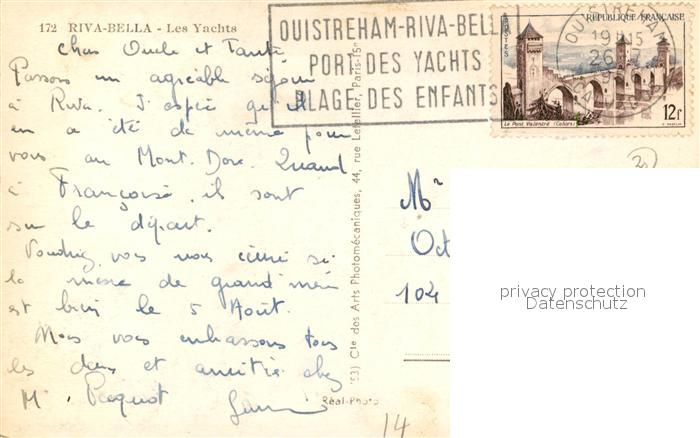 172 RIVA-BELLA - Les Yachts
Chers Oncle et Tante
Passons un agréable séjour
à Riva. J'espère qu'il
en a été de même pour
vous au Mont. Dore. Quand
à Françoise, il sont
sur le départ.
Voudriez vous nous écrire si
la messe de grand'mère
est bien le 5 Août.
Nous vous embrassons tous
les deux et amitiés chez
M Pecquot
OUISTREHAM-RIVA-BELLA
PORT DES YACHTS
PLAGE DES ENFANTS
REPUBLIQUE FRANÇAISE
POSTES
Le Pont Valentré (Cahors)
12F
OUISTREHAM
19H15
26-7
Cie des Arts Photomécaniques, 44, rue Letellier, Paris-15e
Réal-Photo
Mr
Oct
104
14
privacy protection
Datenschutz